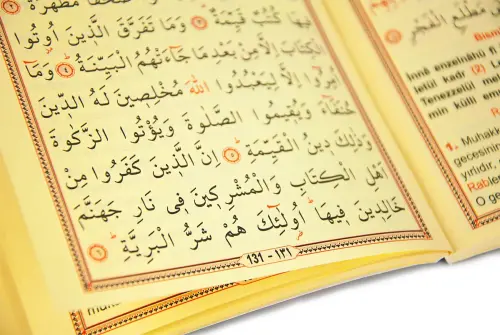 صُحُفًا مُطَهَّرَةً ﴿٢﴾
فِيهَا كُتُبٌ قَيِّمَةٌ ﴿٣﴾ وَمَا تَفَرَّقَ الَّذِينَ اُوتُوا
الْكِتَابَ اِلَّا مِنْ بَعْدِ مَا جَاءَتْهُمُ الْبَيِّنَةُ ﴿٤﴾ وَمَا
اُمِرُوا اِلَّا لِيَعْبُدُوا اللّٰهَ مُخْلِصِينَ لَهُ الدِّينَ
حُنَفَاءَ وَيُقِيمُوا الصَّلٰوةَ وَيُؤْتُوا الزَّكٰوةَ
وَذٰلِكَ دِينُ الْقَيِّمَةِ ﴿٥﴾ اِنَّ الَّذِينَ كَفَرُوا مِنْ
اَهْلِ الْكِتَابِ وَالْمُشْرِكِينَ فِى نَارِ جَهَنَّمَ
خَالِدِينَ فِيهَا اُولٰئِكَ هُمْ شَرُّ الْبَرِيَّةِ ﴿٦﴾
131 - ١٣١
مَطْلَعِ الْفَجْرِ
Bism
Innâ enzelnâhü
letül kadr (2) L
Tenezzelül me
min külli em
1. Muha
gecesinin
yırlıdır.
Rable
O ge